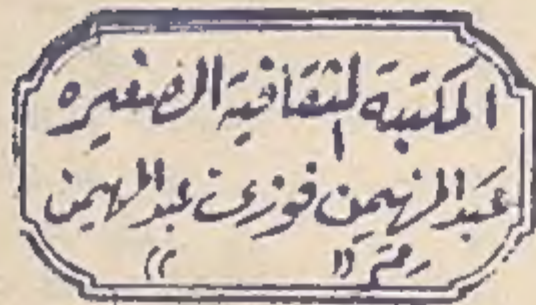 المكتبة الثقافية الصغيره
عبد المهيمن فوزى عبد المهيمن
رقم « »